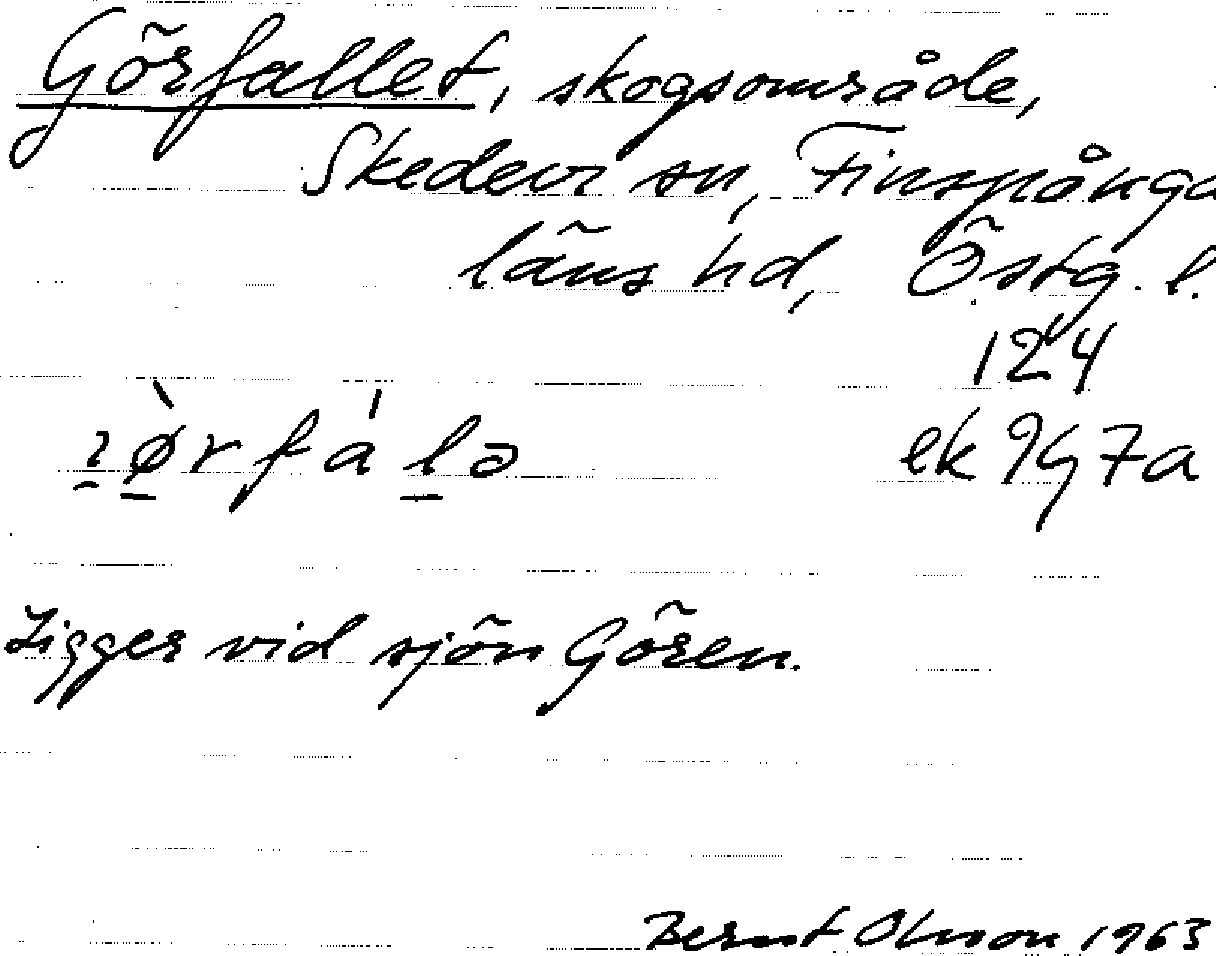 Görfallet, skogsområde,
Skedevi sn, Finspånga
läns hd, Östg. l.
124
ek 9G7a
Ligger vid sjön Gören.
Bernt Olsson 1963